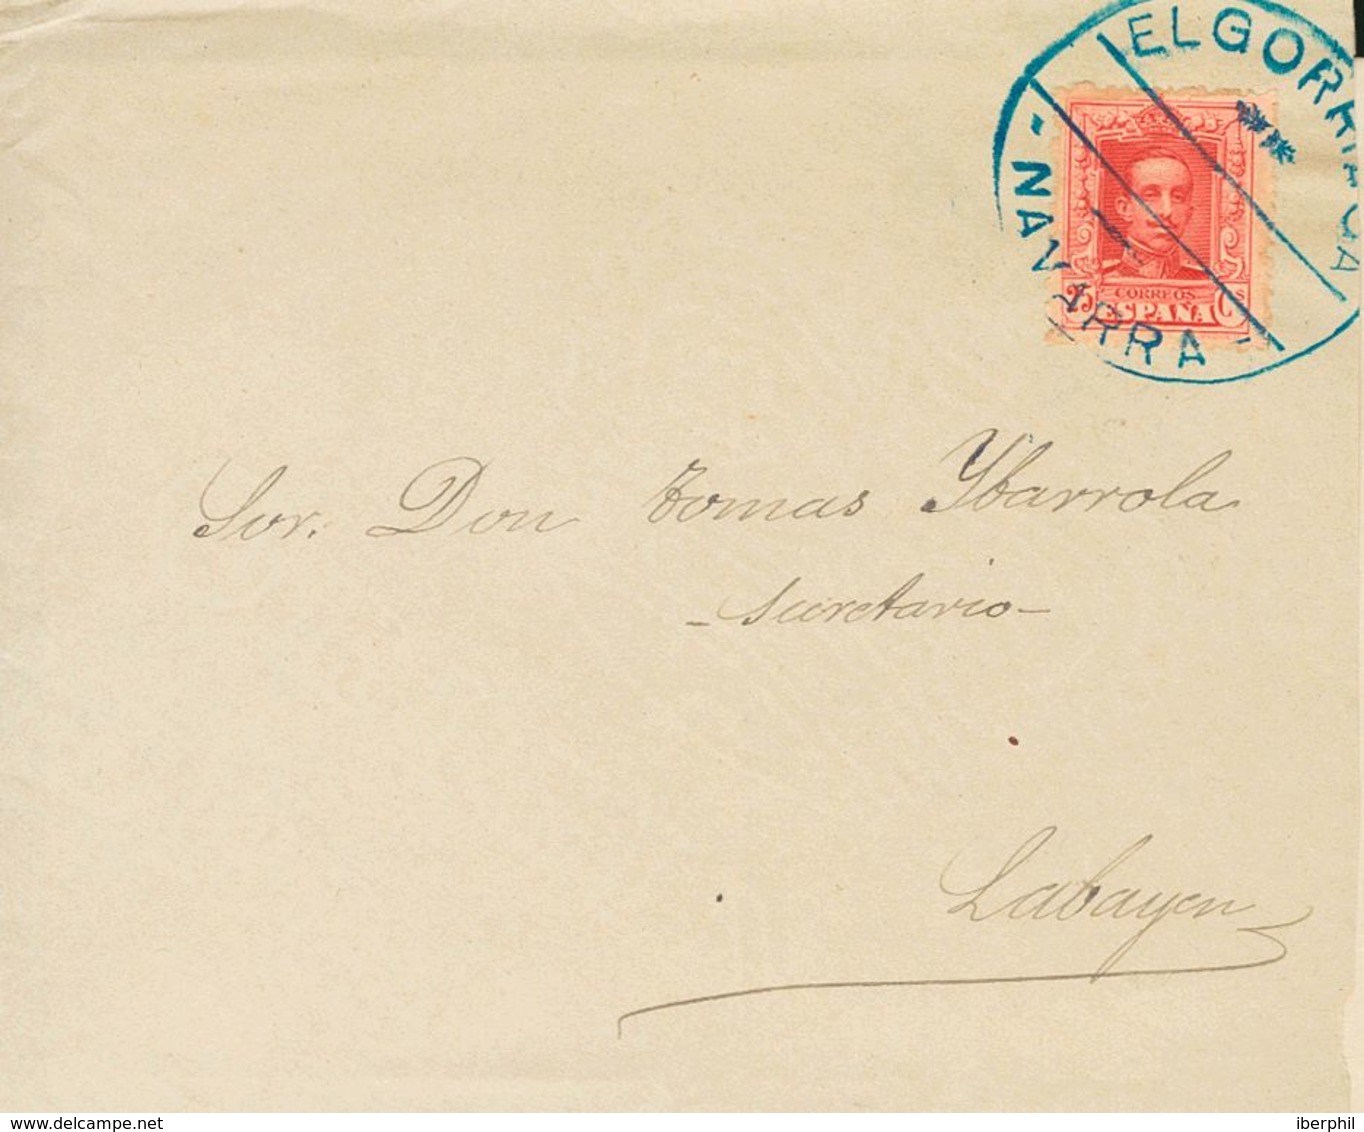 ELGORRIAGA
- NAVARRA -
25 CORREOS Cs
ESPAÑA
Sor. Don Tomas Ybarrola
- Secretario -
Labayen
delcampe.net
iberphil